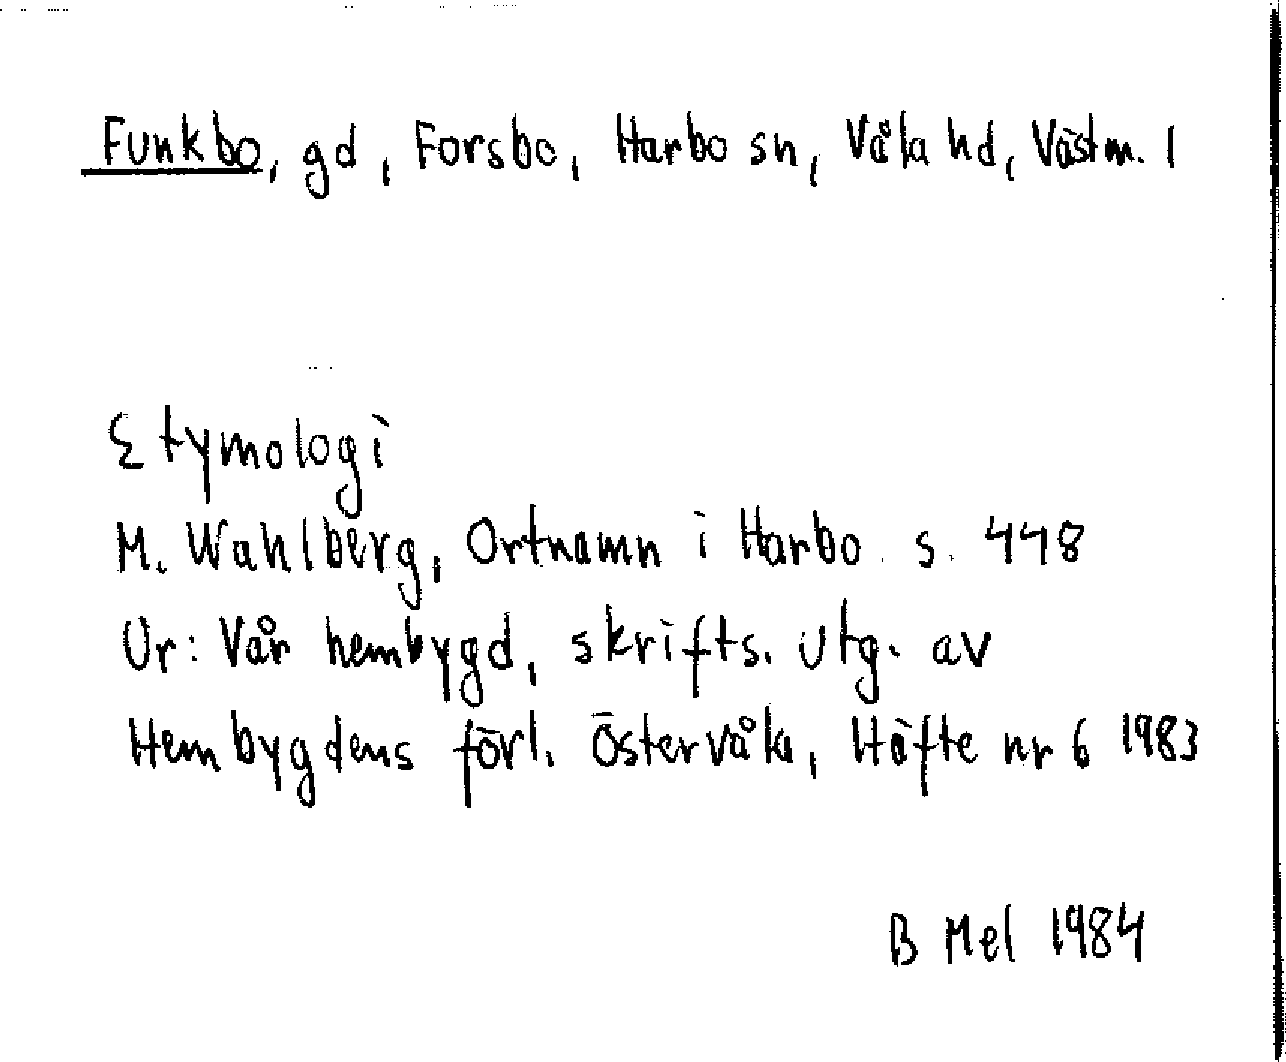 Funkbo, gd, Forsbo, Harbo sn, Våla hd, Västm. l
Etymologi
M. Wahlberg, Ortnamn i Harbo. s. 448
Ur: Vår hembygd, skrifts. utg. av
Hembygdens förl. Östervåla, Häfte nr 6 1983
B Mel 1984